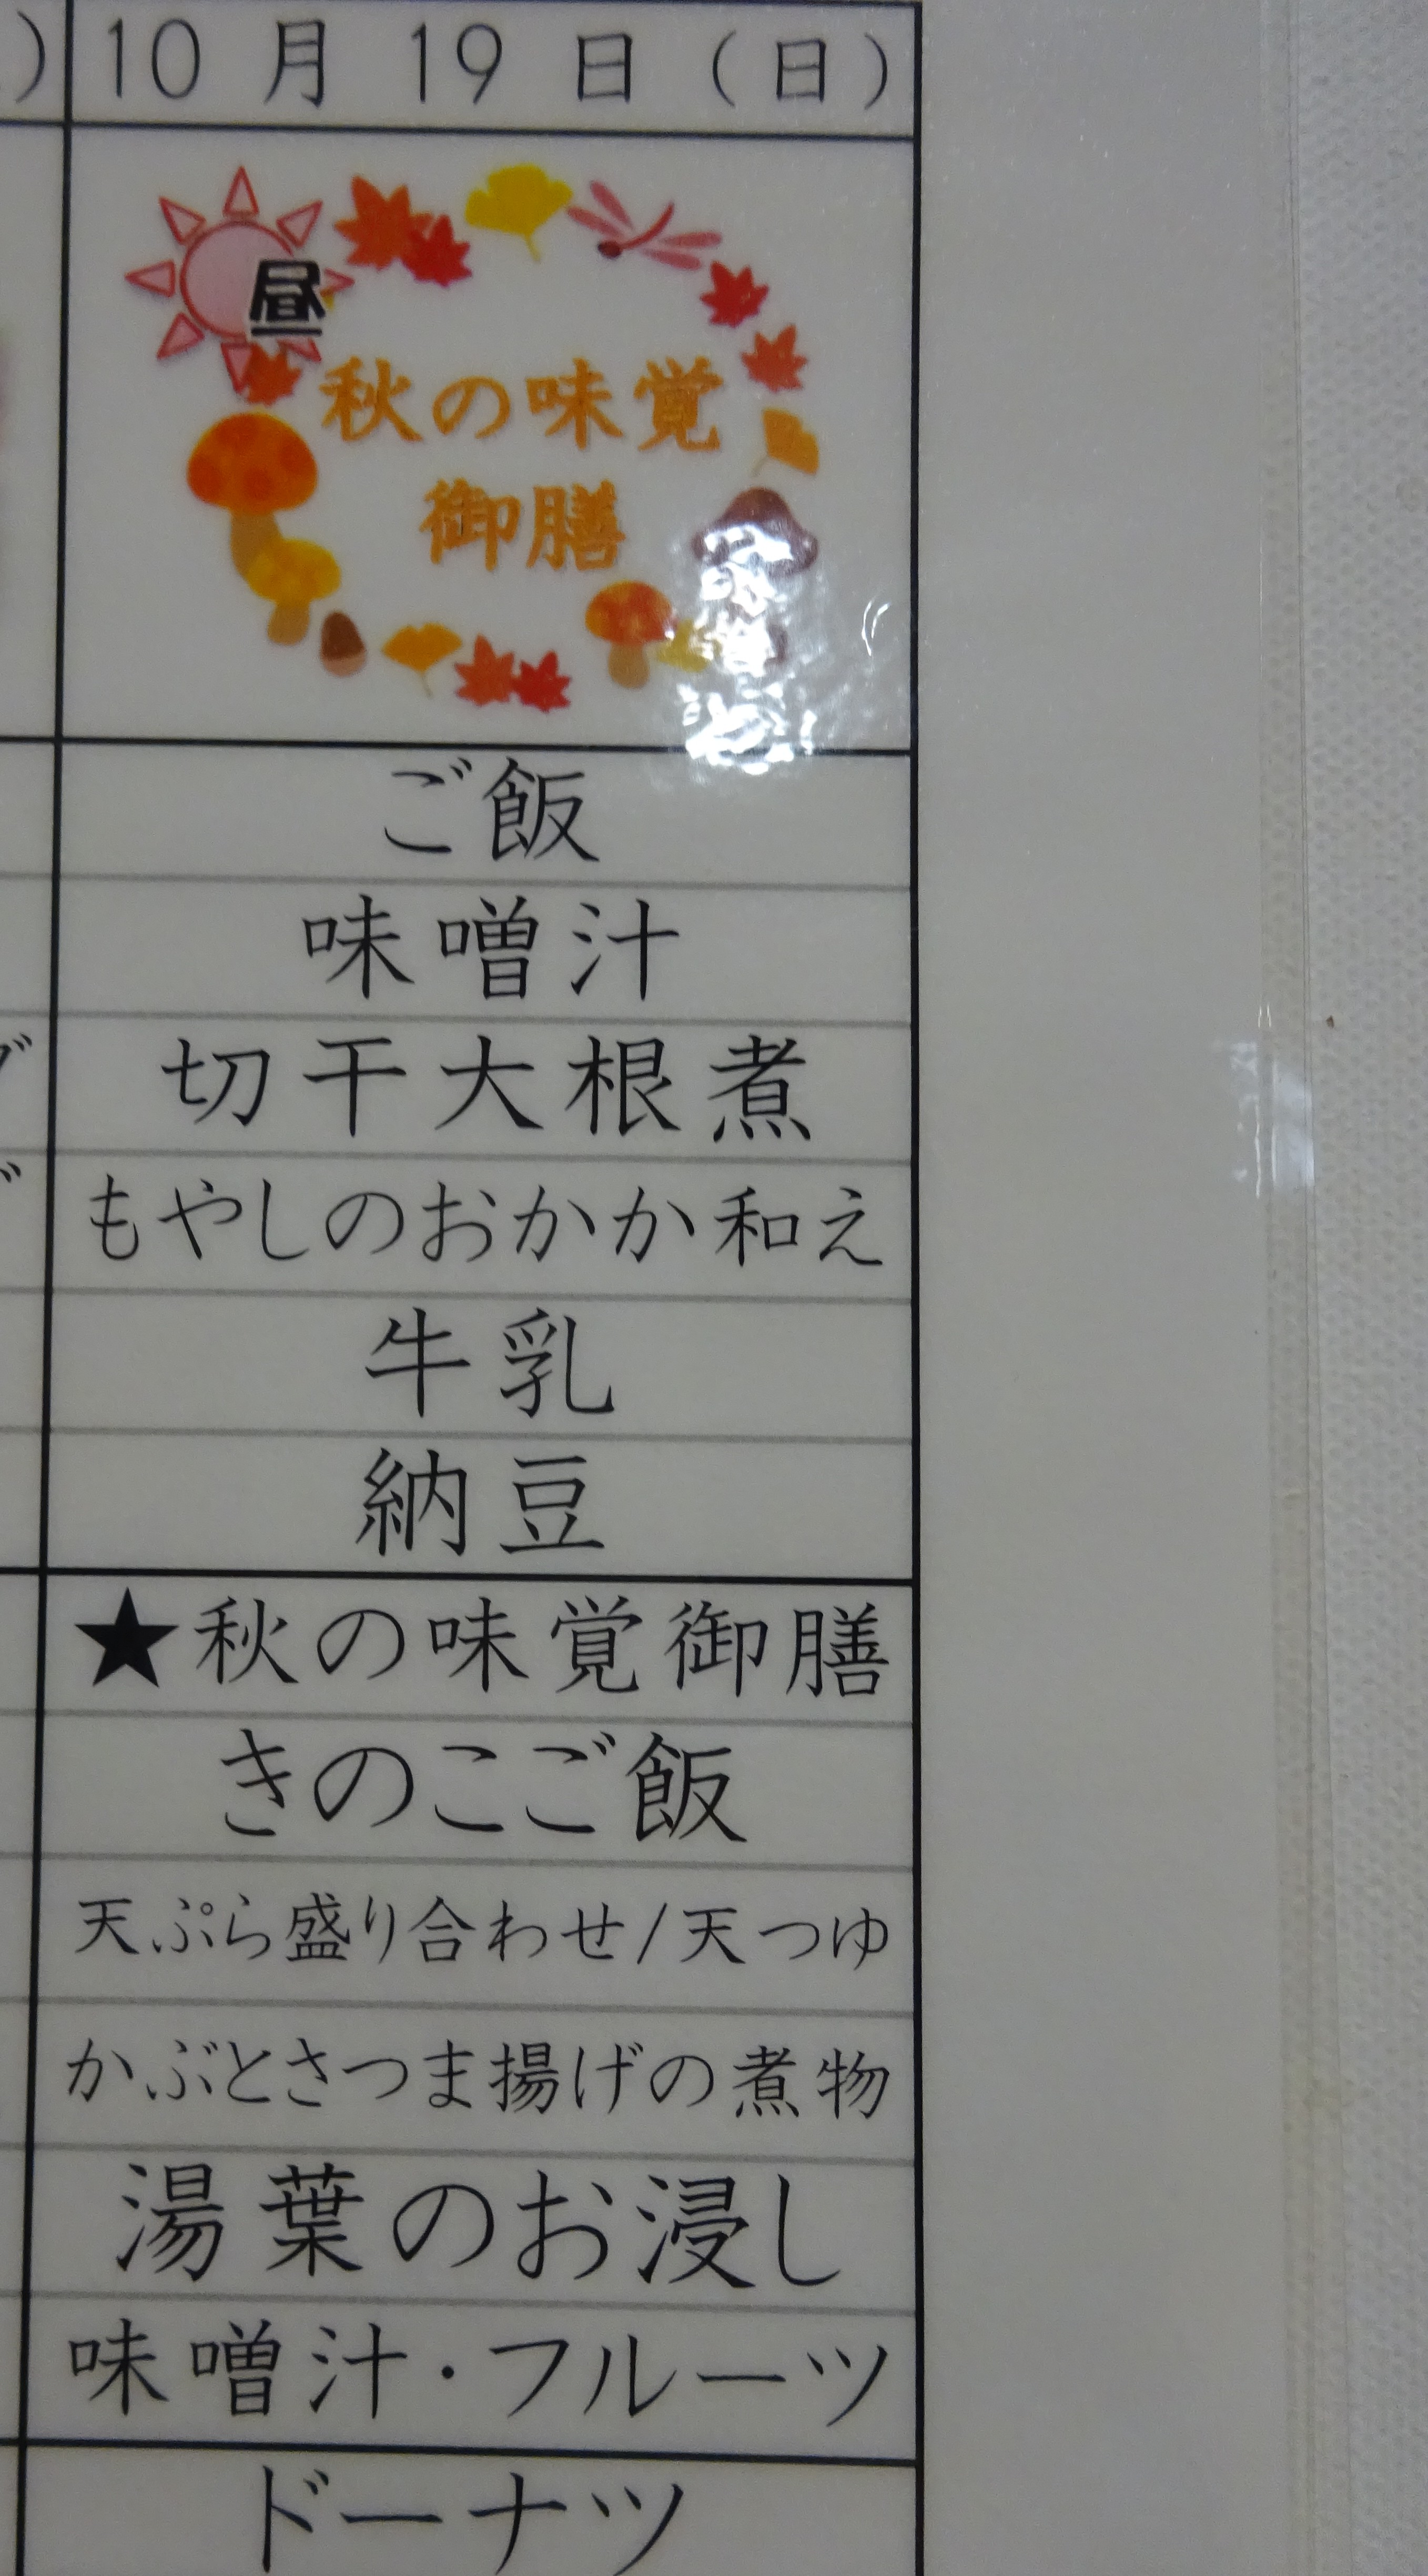 10月19日（日）
昼
秋の味覚
御膳
ご飯
味噌汁
切干大根煮
もやしのおかか和え
牛乳
納豆
★秋の味覚御膳
きのこご飯
天ぷら盛り合わせ/天つゆ
かぶとさつま揚げの煮物
湯葉のお浸し
味噌汁・フルーツ
ドーナツ